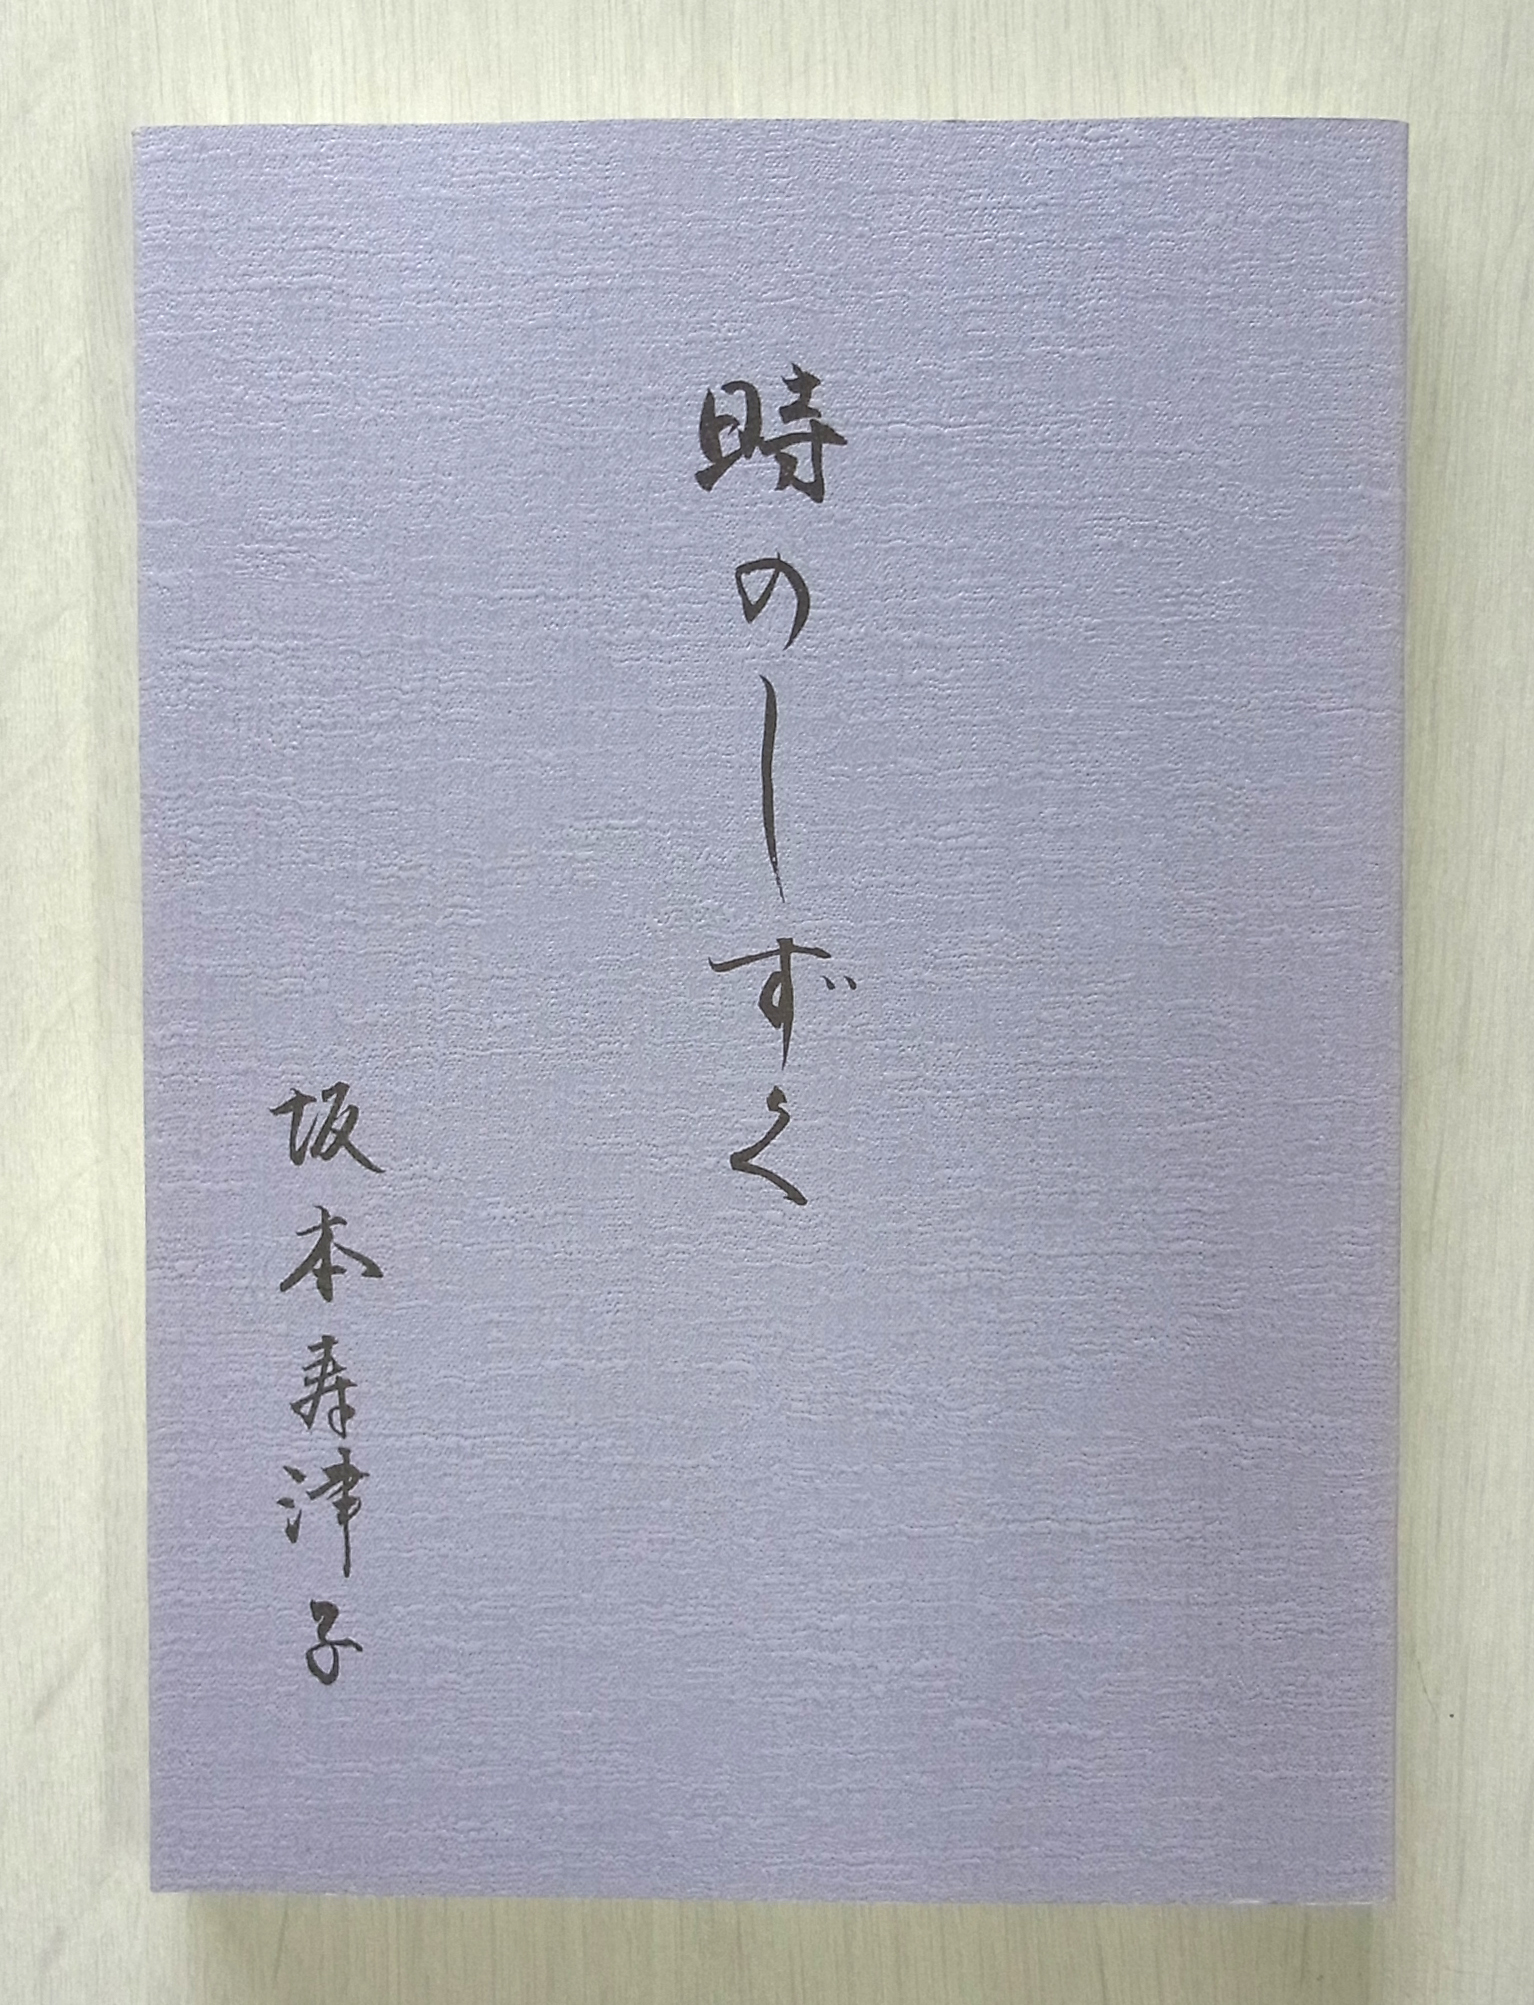 時のしずく
坂本寿津子